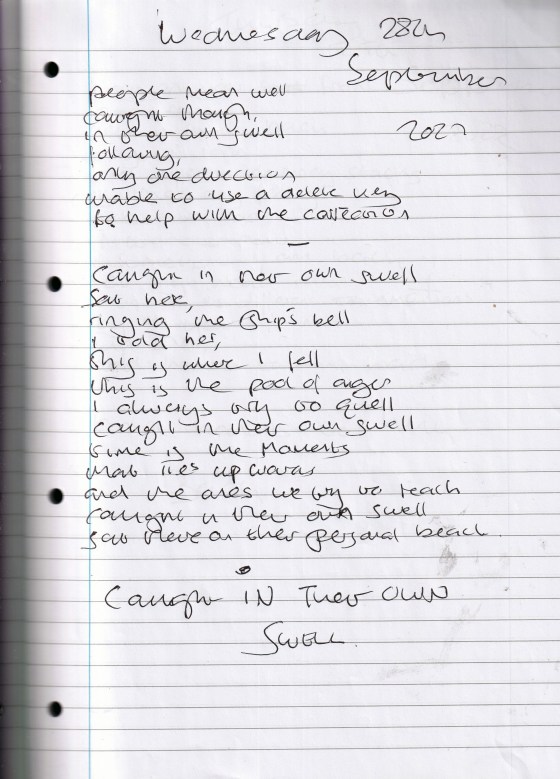 Wednesday 28th
September
people mean well
caught though,
in their own swell
2022
following,
only one direction
unable to use a delete key
to help with the correction
—
Caught in their own swell
Saw her,
ringing the ship's bell
I told her,
this is where I fell
this is the pool of anger
I always try to quell
caught in their own swell
time is the moments
that ties up
and the ones we try to reach
caught in their own swell
sat there on their personal beach.
Caught IN Their OWN
SWELL.